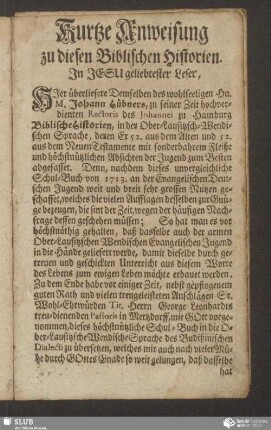 Kurtze Anweisung
zu diesen Biblischen Historien.
In JESU geliebtester Leser,
HIer überliefere Demselben des wohlseeligen Hn.
M. Johann Hübners, zu seiner Zeit hochver-
dienten Rectoris des Johannei zu Hamburg
Biblische Historien, in der Ober-Lausitzsch-Wendi-
schen Sprache, deren Er 52. aus dem Alten und 52.
aus dem Neuen Testamente mit sonderbahrem Fleiße
und höchstnützlichen Absichten der Jugend zum Besten
abgefasset. Denn, nachdem dieses unvergleichliche
Schul-Buch von 1714. an der Evangelischen Deut-
schen Jugend weit und breit sehr grossen Nutzen ge-
schaffet, welches die vielen Aufflagen desselben zur Gnü-
ge bezeugen, die sint der Zeit, wegen der häufigen Nach-
frage dessen geschehen müssen: So hat man es vor
höchstnöthig gehalten, daß dasselbe auch der armen
Ober-Lausitzschen Wendischen Evangelischen Jugend
in die Hände geliefert werde, damit dieselbe durch ge-
treuen und geschickten Unterricht aus diesem Worte
des Lebens zum ewigen Leben möchte erbauet werden.
Zu dem Ende habe vor einiger Zeit, nebst gepflogenem
guten Rath und vielen treugeleisteten Anschlägen Sr.
Wohl-Ehrwürden Tit. Herrn George Leonhardts
treu-dienenden Pastoris in Mertzdorff, mit GOtt vorge-
nommen, dieses höchstnützliche Schul-Buch in die O-
ber-Lausitzsch-Wendische Sprache des Budißinischen
Dialecti zu übersetzen, welches mir auch nach vieler Mü-
he durch GOttes Gnade so weit gelungen, daß dasselbe
hat
SLUB